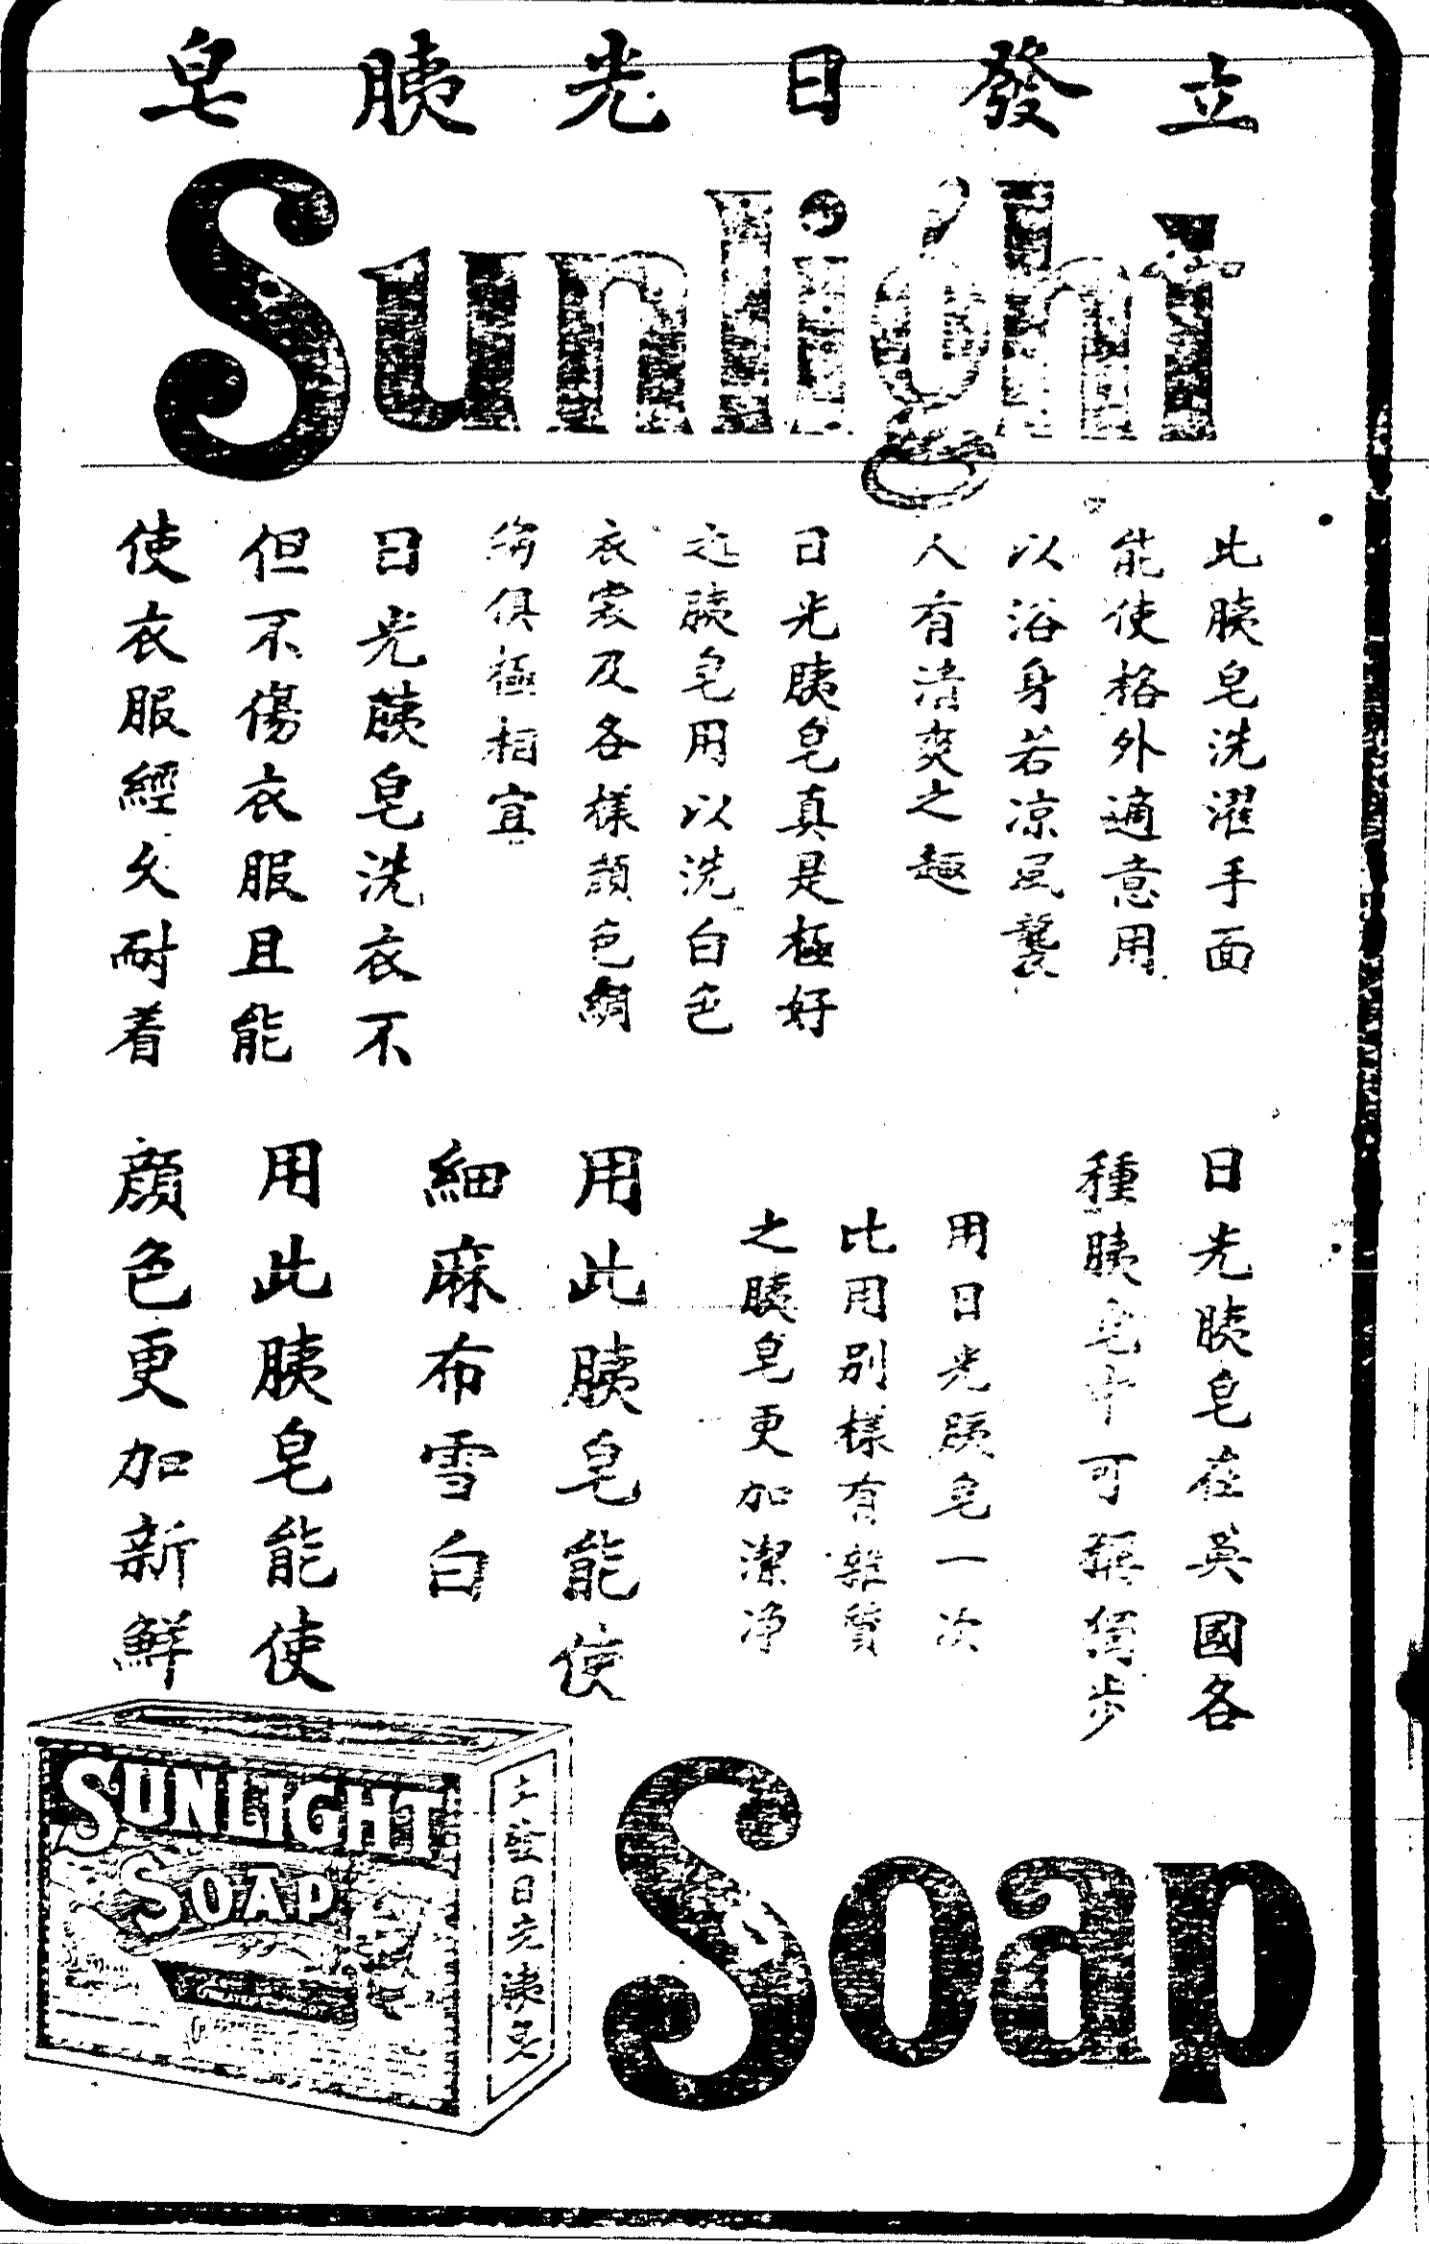 立發日光胰皂
Sunlight
此胰皂洗濯手面
能使格外適意用
以浴身若凉風襲
人有清爽之趣
日光胰皂真是極好
之胰皂用以洗白色
衣裳及各樣顏色綢
俱極相宜
日光胰皂洗衣不
但不傷衣服且能
使衣服經久耐着
日光胰皂在英國各
種胰皂中可稱獨步
用日光胰皂一次
比用別樣有雜質
之胰皂更加潔净
用此胰皂能使
細麻布雪白
用此胰皂能使
顏色更加新鮮
SUNLIGHT
SOAP
立發日光胰皂
Soap